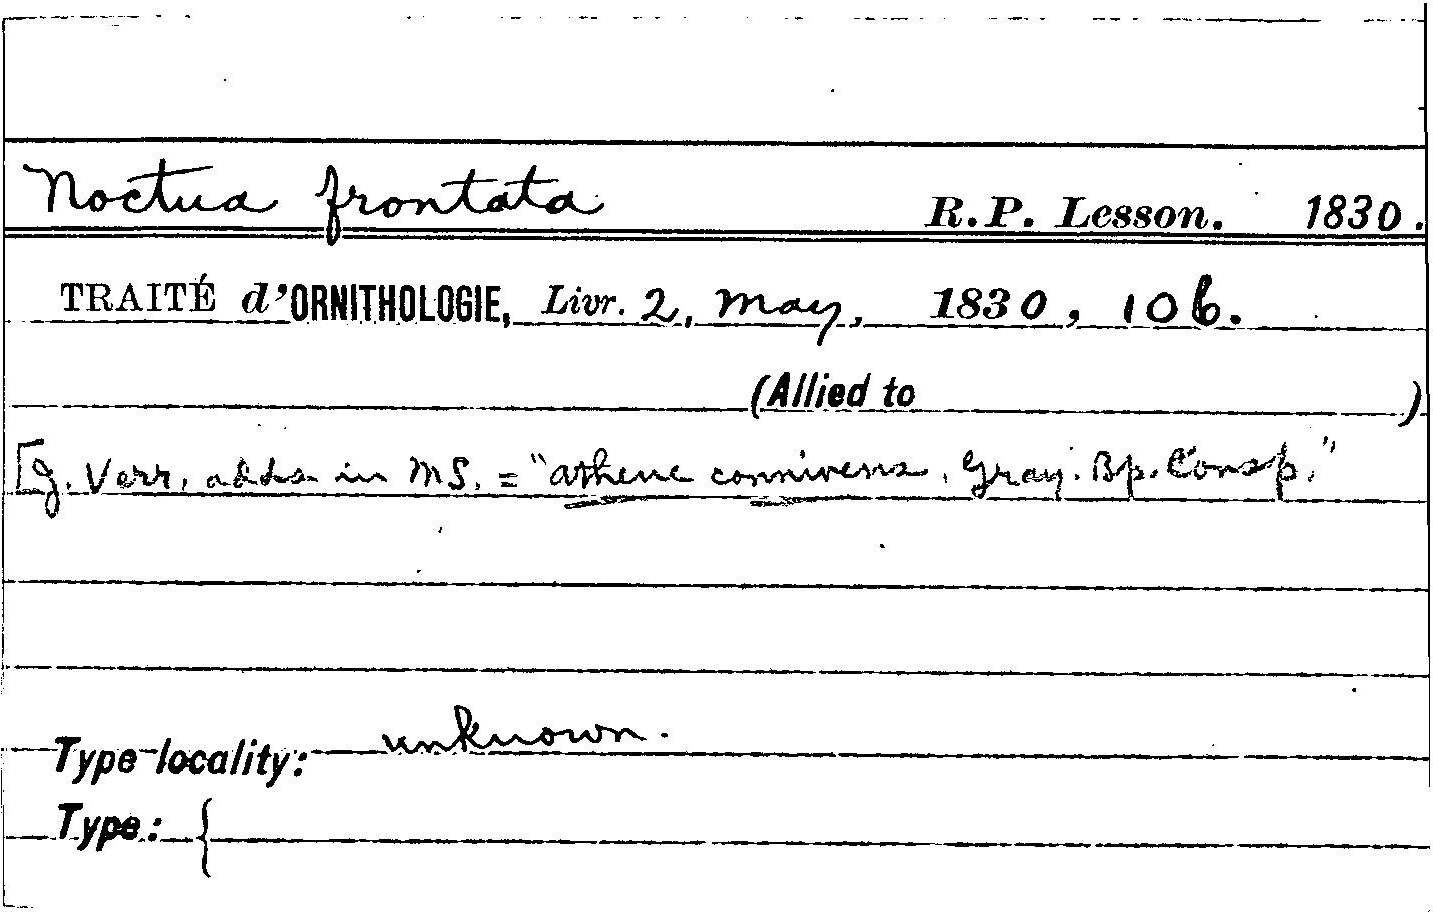 Noctua frontata R.P. Lesson. 1830.
TRAITÉ d'ORNITHOLOGIE, Livr. 2, May, 1830, 106.
(Allied to )
[J. Verr. adds in MS. = "Athene connivens, Gray. Bp. Consp."
Type-locality: unknown.
Type: {